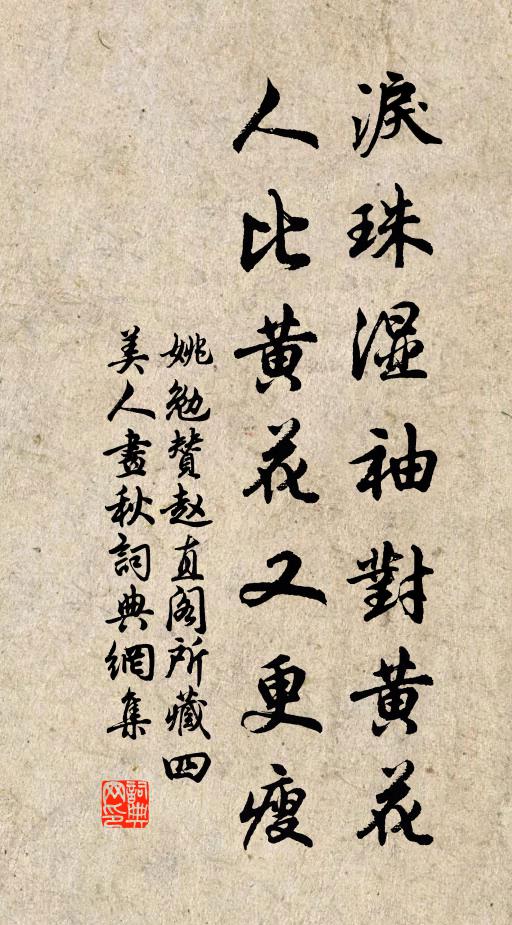 淚珠湿袖對黄花
人比黄花又更瘦
姚勉贊赵直阁所藏四
美人畫秋詞典網集
詞典网印